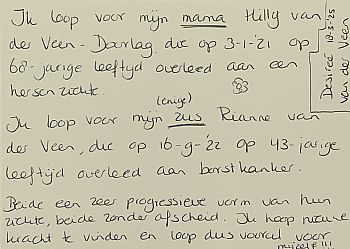 Ik loop voor mijn mama Hilly van
der Veen - Doorlag, die op 3-1-'21 op
68-jarige leeftijd overleed aan een
hersenziekte.
(enige)
Ik loop voor mijn zus Rianne van
der Veen, die op 16-9-'22 op 43-jarige
leeftijd overleed aan borstkanker.
Beide een zeer progressieve vorm van hun
ziekte, beide zonder afscheid. Ik hoop nieuwe
kracht te vinden en loop dus vooral voor
mezelf!!!
Desiree
van der Veen